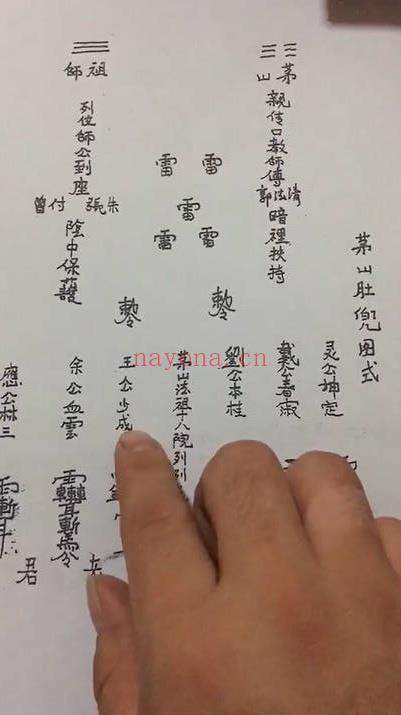 茅山肚兜图式
茅山
親传口教師傅郭法清暗裡扶持
灵公坤定
戴公春淑
劉公本桂
雷雷
雷
雷雷
敕令
敕令
茅山法祖十八院列
王公少成
祖師
列位師公到座
朱張付曾
陰中保護
余公血雲
應公林三
君
nayona.cn